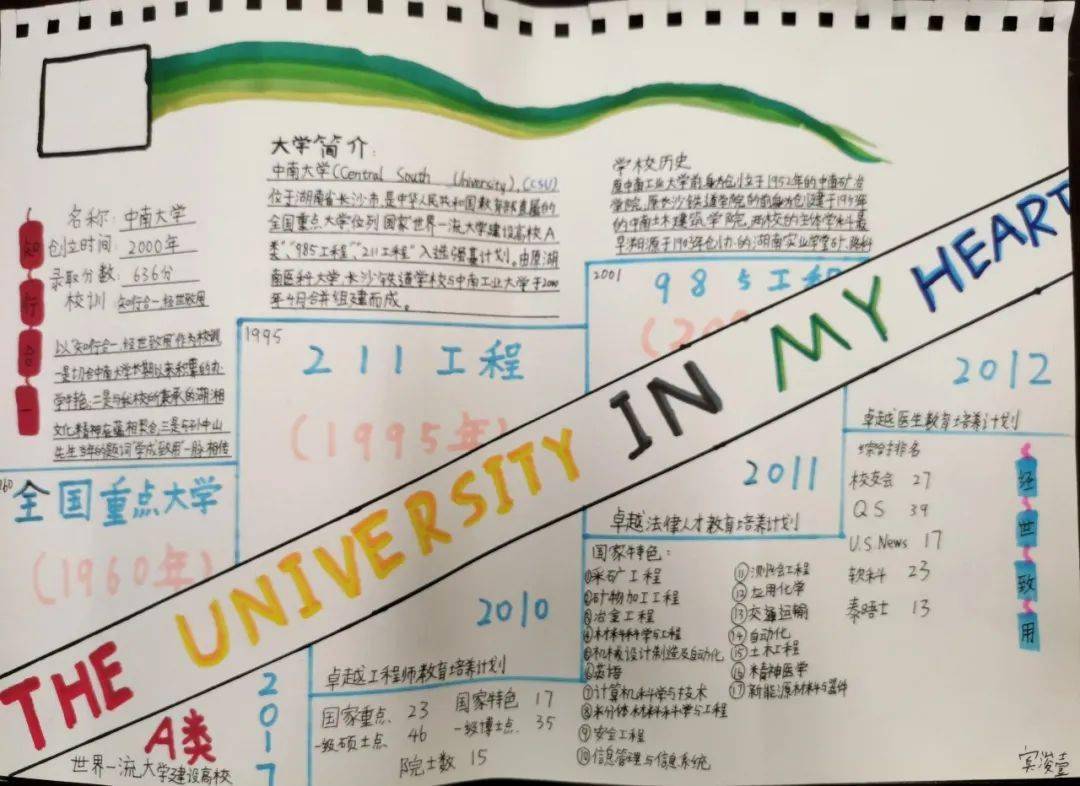 知
行
合
一
名称：中南大学
创立时间：2000年
录取分数：636分
校训：知行合一，经世致用
以"知行合一、经世致用"作为校训
一是切合中南大学长期以来积累的办
学特色；二是与长校的秉承的湖湘
文化精神底蕴相契合；三是与孙中山
先生当年的题词"学成致用"一脉相传
大学简介：
中南大学(Central South University),(CSU)
位于湖南省长沙市,是中华人民共和国教育部直属的
全国重点大学位列国家"世界一流大学建设高校A
类"、"985工程""211工程"入选强基计划。由原湖
南医科大学,长沙铁道学校与中南工业大学于2000
年4月合并组建而成。
学校历史
原中南工业大学前身为创立于1952年的中南矿冶
学院,原长沙铁道学院的前身为创建于1953年
的中南土木建筑学院,两校的主体学科最
早溯源于1903年创办的湖南实业学堂矿、路科
1995
211工程
(1995年)
2001
985工程
(200
全国重点大学
(1960年)
THE UNIVERSITY IN MY HEART
2012
卓越医生教育培养计划
综合排名
校友会 27
QS 39
U.S.News 17
软科 23
泰晤士 13
经
世
致
用
2011
卓越法律人才教育培养计划
国家特色：
①采矿工程
②矿物加工工程
③冶金工程
④材料科学与工程
⑤机械设计制造及自动化
⑥英语
⑦计算机科学与技术
⑧粉体材料科学与工程
⑨安全工程
⑩信息管理与信息系统
⑪测绘工程
⑫应用化学
⑬交通运输
⑭自动化
⑮土木工程
⑯精神医学
⑰新能源材料与器件
2010
卓越工程师教育培养计划
国家重点 23 国家特色 17
一级硕士点 46 一级博士点 35
院士数 15
2017
A类
世界一流大学建设高校